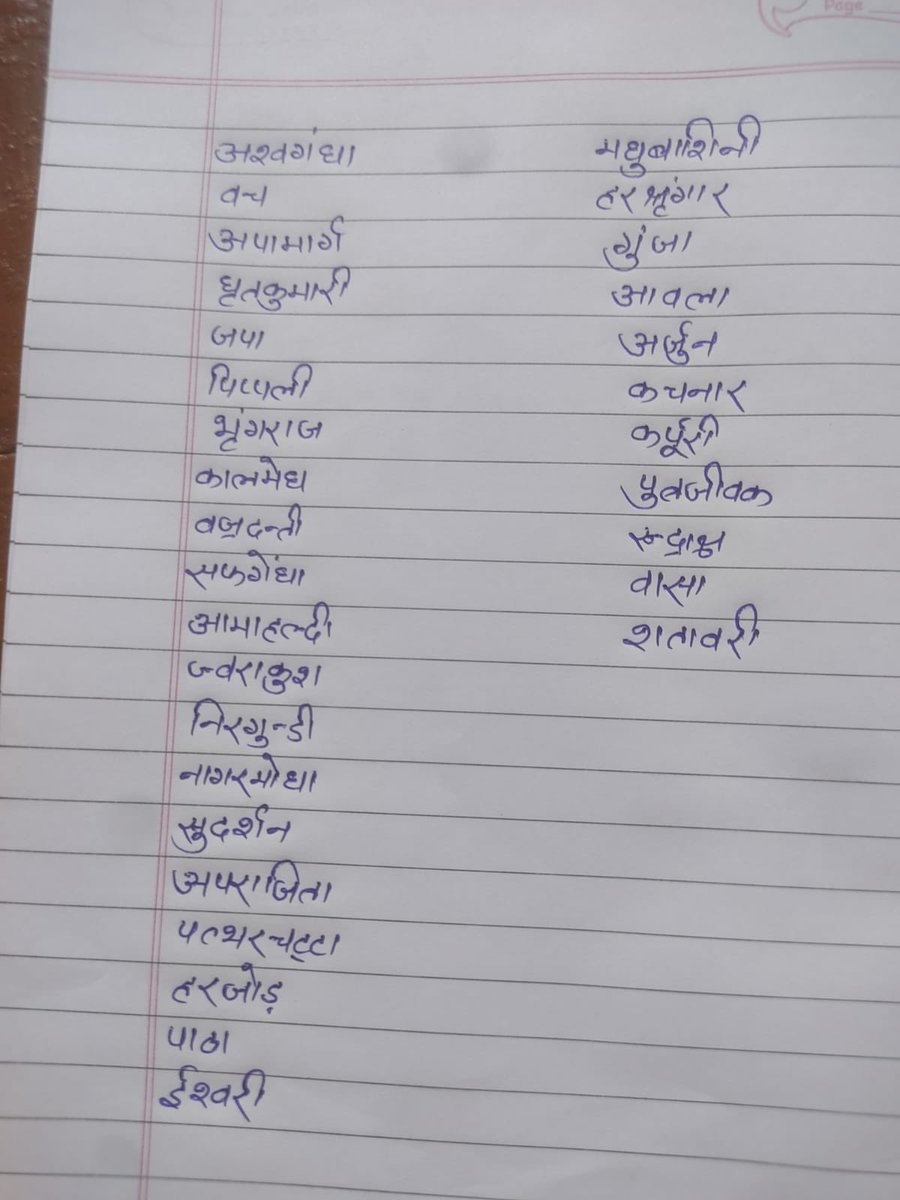 Page
अश्वगंधा
वच
अपामार्ग
घृतकुमारी
जपा
पिप्पली
भृंगराज
कालमेघ
वज्रदन्ती
सफगेंधा
आमाहल्दी
ज्वराकुश
निरगुन्डी
नागरमोथा
सुदर्शन
अपराजिता
पत्थरचट्टा
हरजोड़
पाठा
ईश्वरी
मधुबाशिनी
हरश्रृंगार
गुंजा
आवला
अर्जुन
कचनार
कर्पूरी
पुत्रजीवक
रुद्राक्ष
वासा
शतावरी